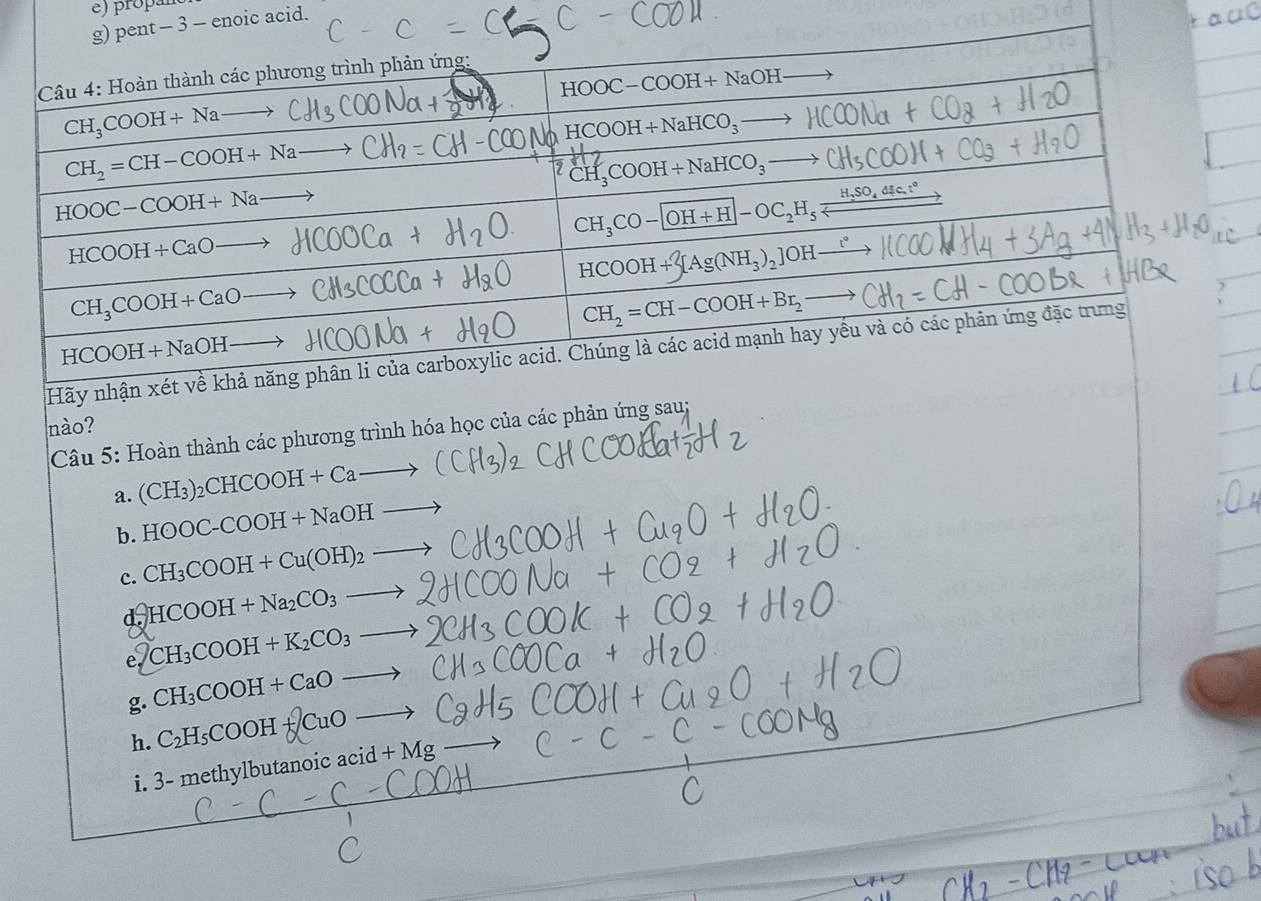 e)
g) pent – 3 – enoic acid. C - C = C - C - COOH
Câu 4: Hoàn thành các phương trình phản ứng:
CH₃COOH + Na ⟶ CH3COONa +
HOOC–COOH + NaOH ⟶
CH₂ = CH – COOH + Na ⟶ CH2 = CH - COONa + 1/2 H2
HCOOH + NaHCO₃ ⟶ HCOONa + CO2 + H2O
HOOC–COOH + Na ⟶
CH₃COOH + NaHCO₃ ⟶ CH3COOH + CO2 + H2O
HCOOH + CaO ⟶ HCOOCa + H2O.
CH₃CO – OH + H – OC₂H₅ H₂SO₄ đặc, t° ⇌
CH₃COOH + CaO ⟶ CH3COCCa + H2O
HCOOH + 3[Ag(NH₃)₂]OH t° ⟶ HCOONH4 + 3Ag + 4NH3 + H2O
HCOOH + NaOH ⟶ HCOONa + H2O
CH₂ = CH – COOH + Br₂ ⟶ CH2 = CH - COOBr + HBr
Hãy nhận xét về khả năng phân li của carboxylic acid. Chúng là các acid mạnh hay yếu và có các phản ứng đặc trưng
nào?
Câu 5: Hoàn thành các phương trình hóa học của các phản ứng sau:
a. (CH₃)₂CHCOOH + Ca ⟶ (CH3)2 CHCOOCa + 1/2 H2
b. HOOC-COOH + NaOH ⟶
c. CH₃COOH + Cu(OH)₂ ⟶ CH3COOH + Cu2O + H2O.
d. 2HCOOH + Na₂CO₃ ⟶ 2HCOONa + CO2 + H2O.
e. 2CH₃COOH + K₂CO₃ ⟶ 2CH3COOK + CO2 + H2O.
g. CH₃COOH + CaO ⟶ CH3COOCa + H2O
h. C₂H₅COOH + 2CuO ⟶ C2H5COOH + Cu2O + H2O
i. 3- methylbutanoic acid + Mg ⟶ C - C - C - COOMg
C
C - C - C - COOH
C
but
CH2 - CH2 -
: iso b